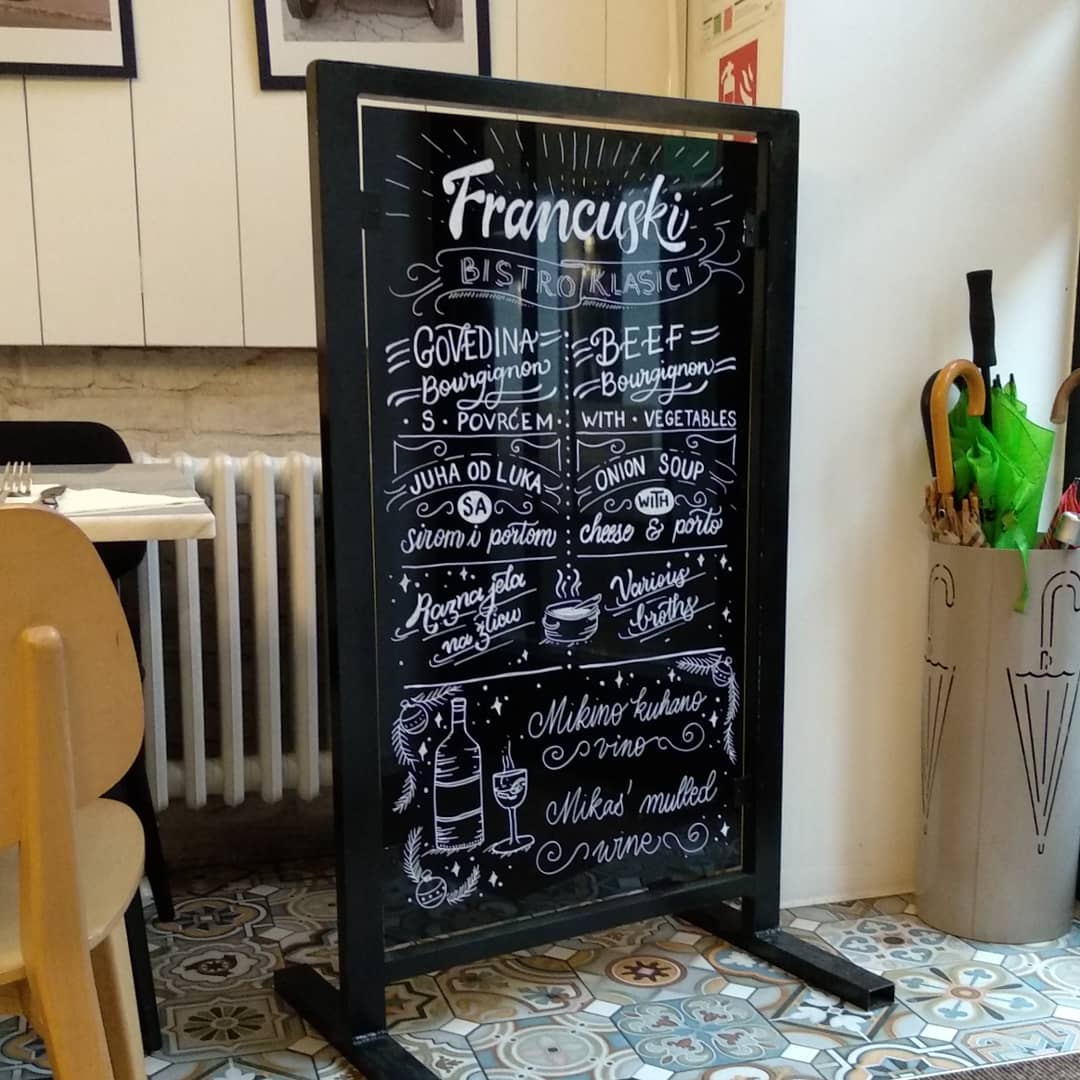 Francuski
BISTRO KLASICI
GOVEDINA
Bourgignon
S · POVRĆEM
BEEF
Bourgignon
WITH · VEGETABLES
JUHA OD LUKA
SA
sirom i portom
ONION SOUP
WITH
cheese & porto
Razna jela
na žlicu
Various
broths
Mikino kuhano
vino
Mikas' mulled
wine